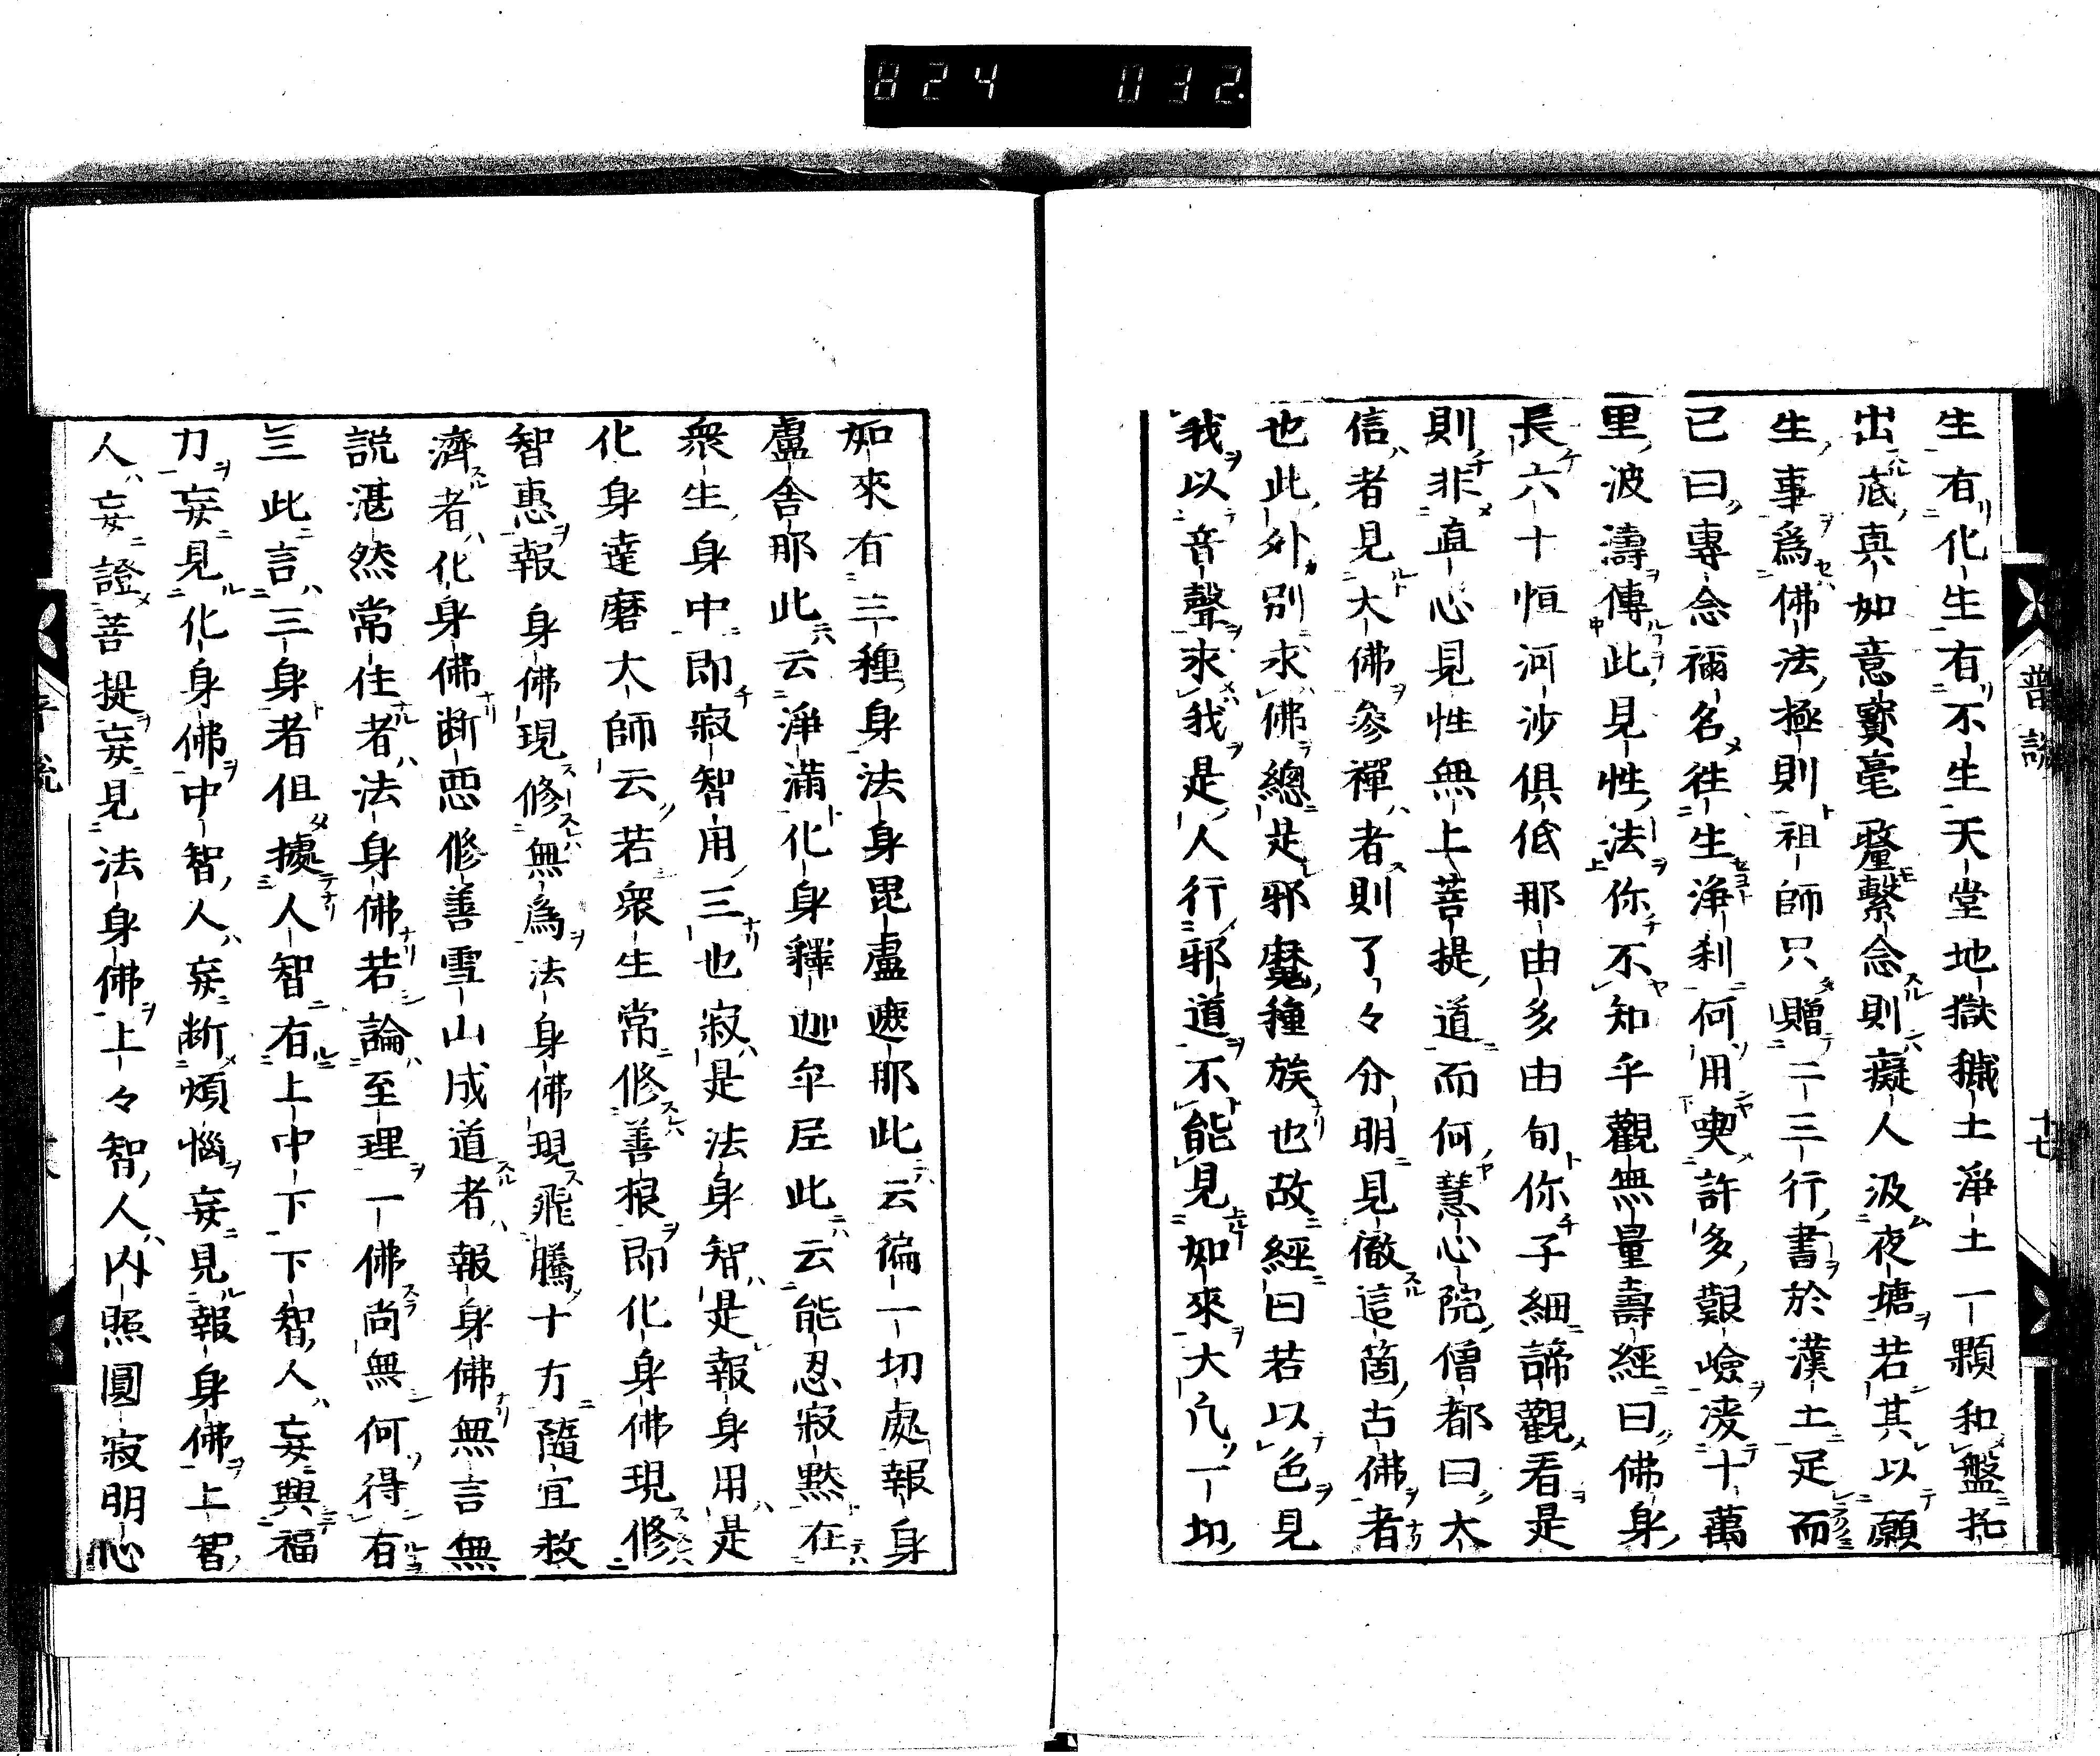 824 032
普說 十七
生有化生有不生天堂地獄穢土淨土一顆和盤托
出底眞如意寶毫釐繫念則癡人汲夜塘若其以願
生事爲佛法極則祖師只贈二三行書於漢土足而
已曰專念禰名徃生淨刹何用喫許多艱嶮凌十萬
里波濤傳此見性法你不知乎觀無量壽經曰佛身
長六十恒河沙俱低那由多由旬你子細諦觀看是
則非直心見性無上菩提道而何慧心院僧都曰太
信者見大佛參禪者則了々分明見徹這箇古佛者
也此外別求佛總是邪魔種族也故經曰若以色見
我以音聲求我是人行邪道不能見如來大凡一切
如來有三種身法身毘盧遮那此云徧一切處報身
盧舍那此云淨滿化身釋迦牟尼此云能忍寂默在
衆生身中即寂智用三也寂是法身智是報身用是
化身達磨大師云若衆生常修善根即化身佛現修
智惠報身佛現修無爲法身佛現飛騰十方隨宜救
濟者化身佛斷惡修善雪山成道者報身佛無言無
説湛然常住者法身佛若論至理一佛尚無何得有
三此言三身者但據人智有上中下下智人妄興福
力妄見化身佛中智人妄斷煩惱妄見報身佛上智
人妄證菩提妄見法身佛上々智人內照圓寂明心